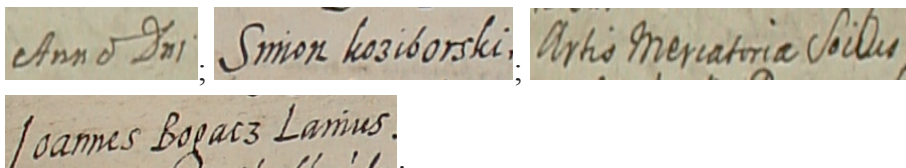 Anno Dni ; Simon koziborski. ; Artis Mercatoria Soi͠us
Joannes Bogacz Lanius.